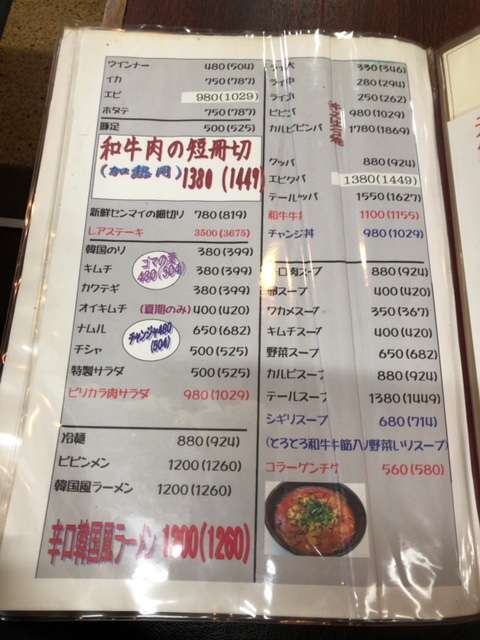 ウインナー 480(504)
イカ 750(787)
エビ 980(1029)
ホタテ 750(787)
豚足 500(525)
和牛肉の短冊切
(加熱用) 1380(1449)
新鮮センマイの細切り 780(819)
レアステーキ 3500(3675)
韓国のり 380(399)
ゴマの葉
480(504)
キムチ 380(399)
カクテギ 380(399)
オイキムチ (夏期のみ) 400(420)
ナムル 650(682)
チャンジャ480
(504)
チシャ 500(525)
特製サラダ 500(525)
ピリカラ肉サラダ 980(1029)
冷麺 880(924)
ビビンメン 1200(1260)
韓国風ラーメン 1200(1260)
辛口韓国風ラーメン 1200(1260)
330(346)
280(294)
250(262)
980(1029)
カルビビンバ 1780(1869)
クッパ 880(924)
エビクッパ 1380(1449)
テールクッパ 1550(1627)
和牛丼 1100(1155)
チャンジ丼 980(1029)
肉スープ 880(924)
卵スープ 400(420)
ワカメスープ 350(367)
キムチスープ 400(420)
野菜スープ 650(682)
カルビスープ 880(924)
テールスープ 1380(1449)
シギリスープ 680(714)
(とろとろ和牛筋入り野菜いりスープ)
コラーゲンチゲ 560(580)